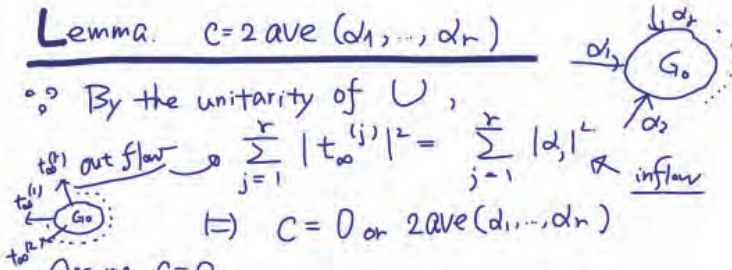 Lemma. C = 2 ave (α1, ..., αr)
αr
α1
G0
α2
∵ By the unitarity of U,
t∞^(r) out flow
∑_{j=1}^{r} |t∞^(j)|² = ∑_{j=1}^{r} |αj|²
inflow
t∞^(1)
G0
t∞^(2)
⇔ C = 0 or 2ave(α1, .., αr)